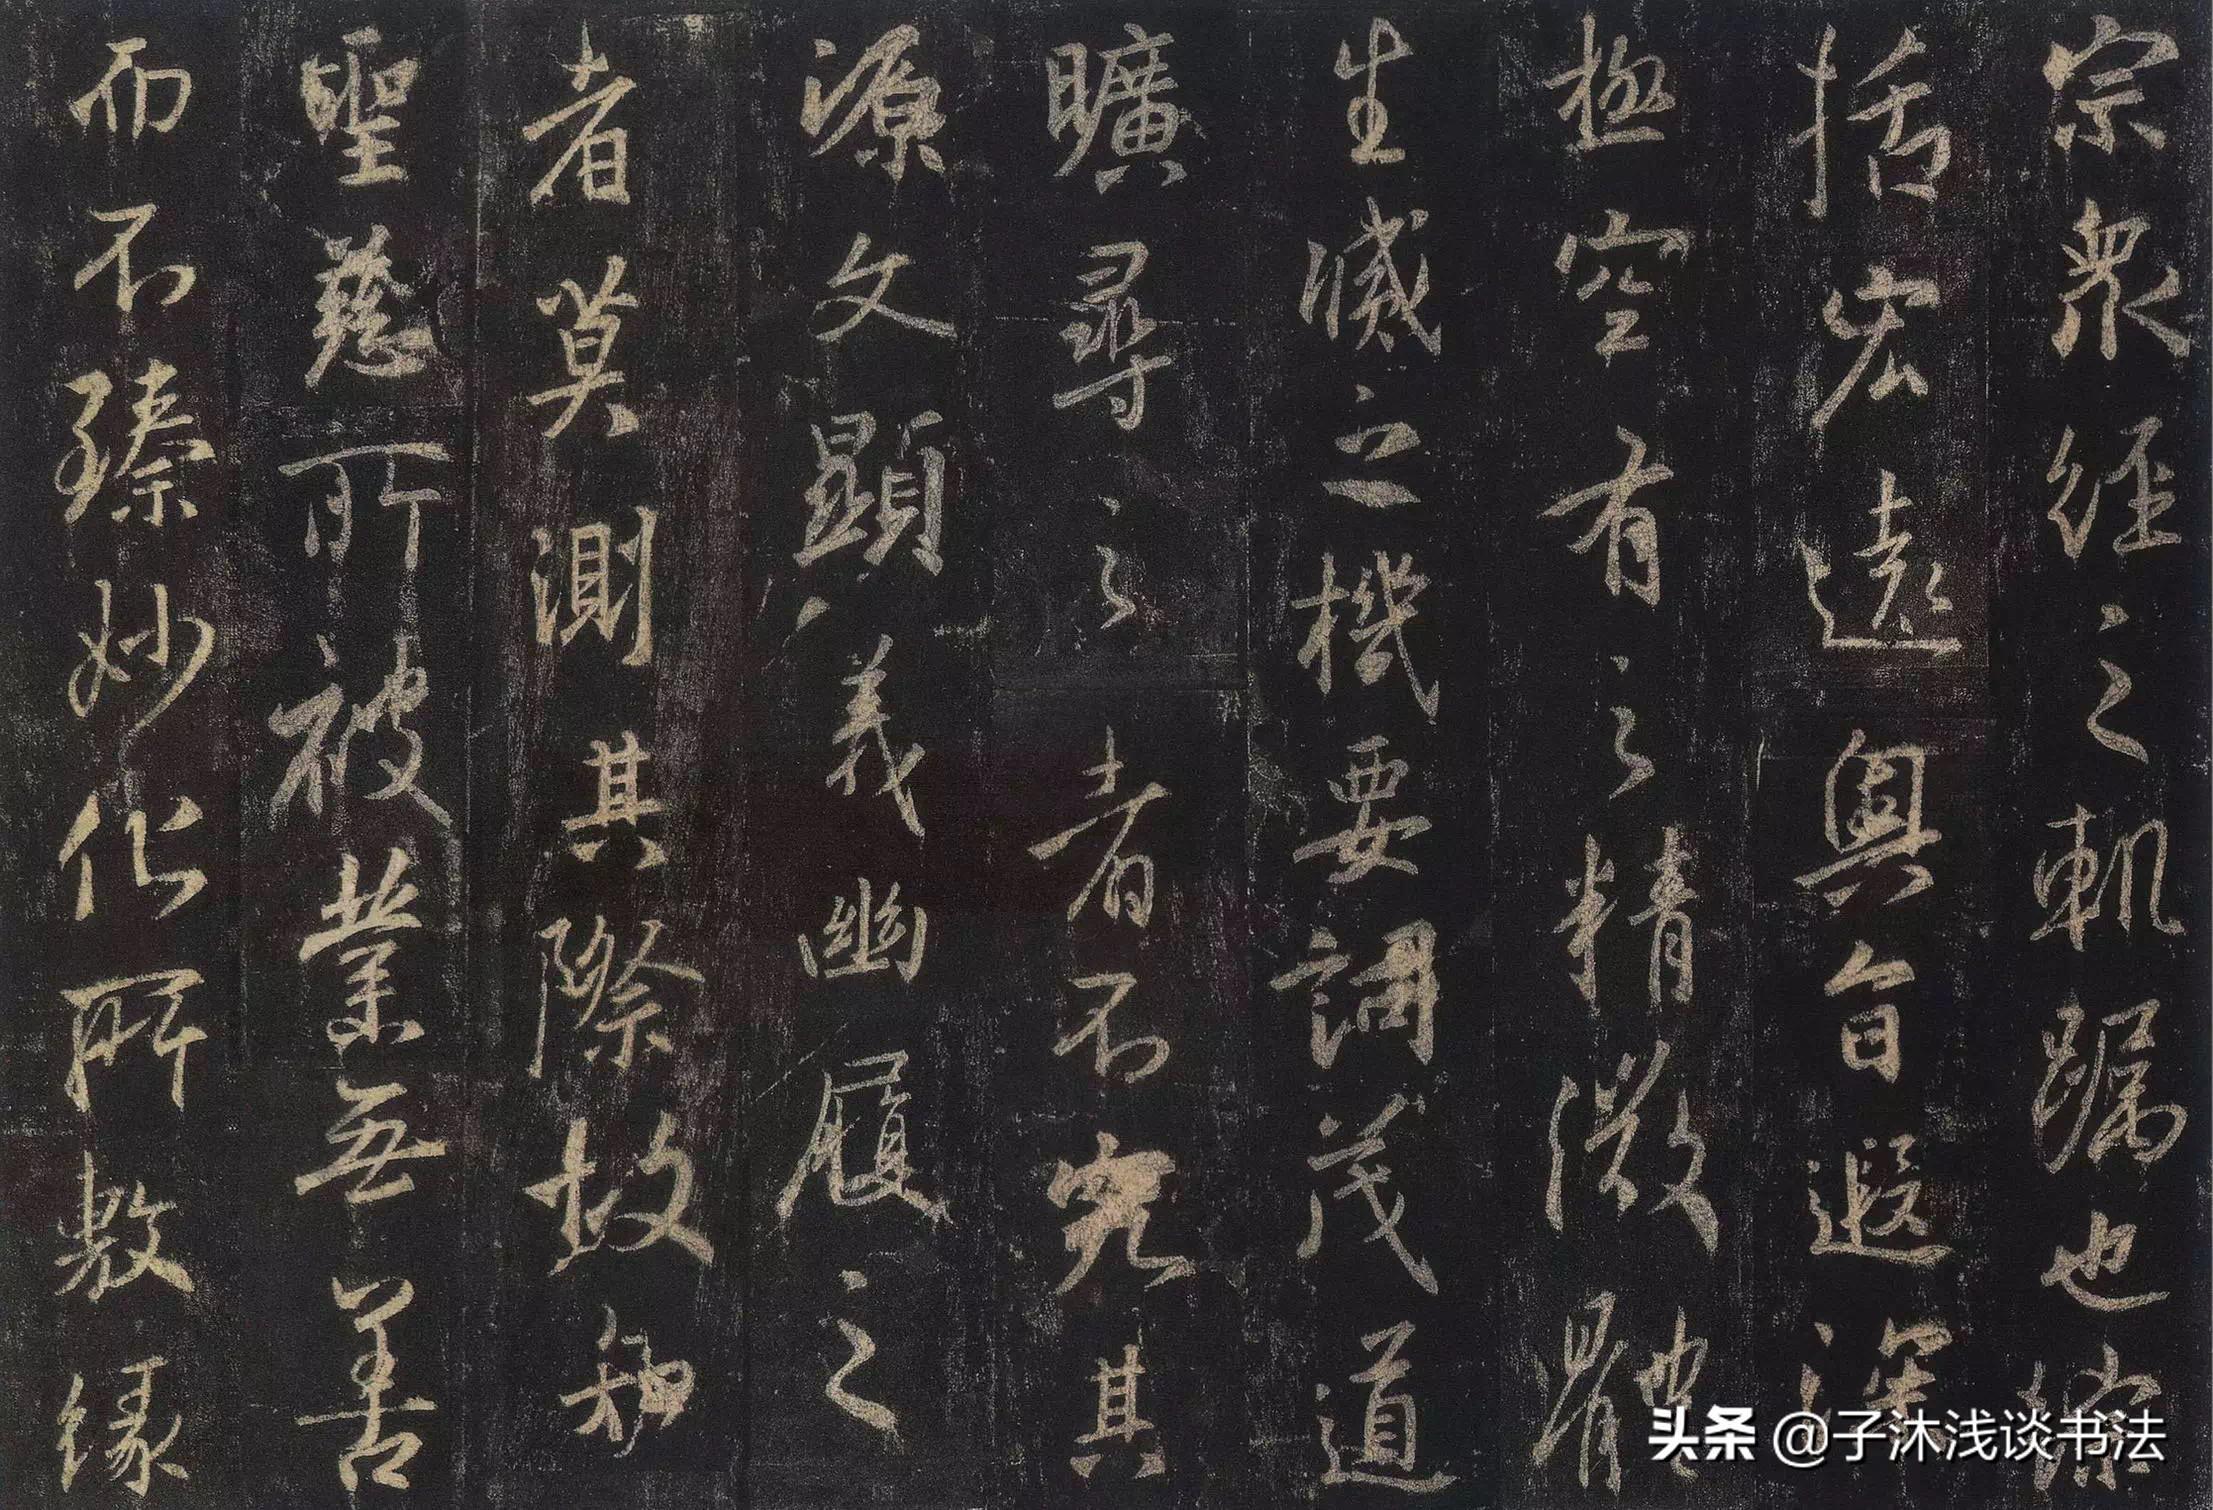 宗眾經之軌躅也綜
括宏遠奧旨遐深
極空有之精微體
生滅之機要詞茂道
曠尋之者不究其
源文顯義幽履之
者莫測其際故知
聖慈所被業無善
而不臻妙化所敷緣
头条 @子沐浅谈书法